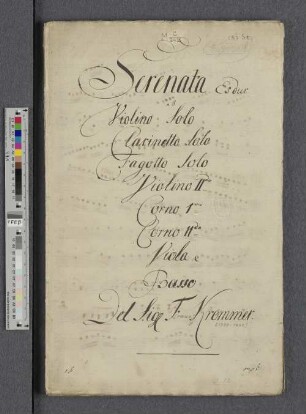 Serenata Es dur
Violino Solo
Clarinetto Solo
Fagotto Solo
Violino II
Corno 1mo
Corno IIdo
Viola e
Basso
Del Sigr F. Krommer.